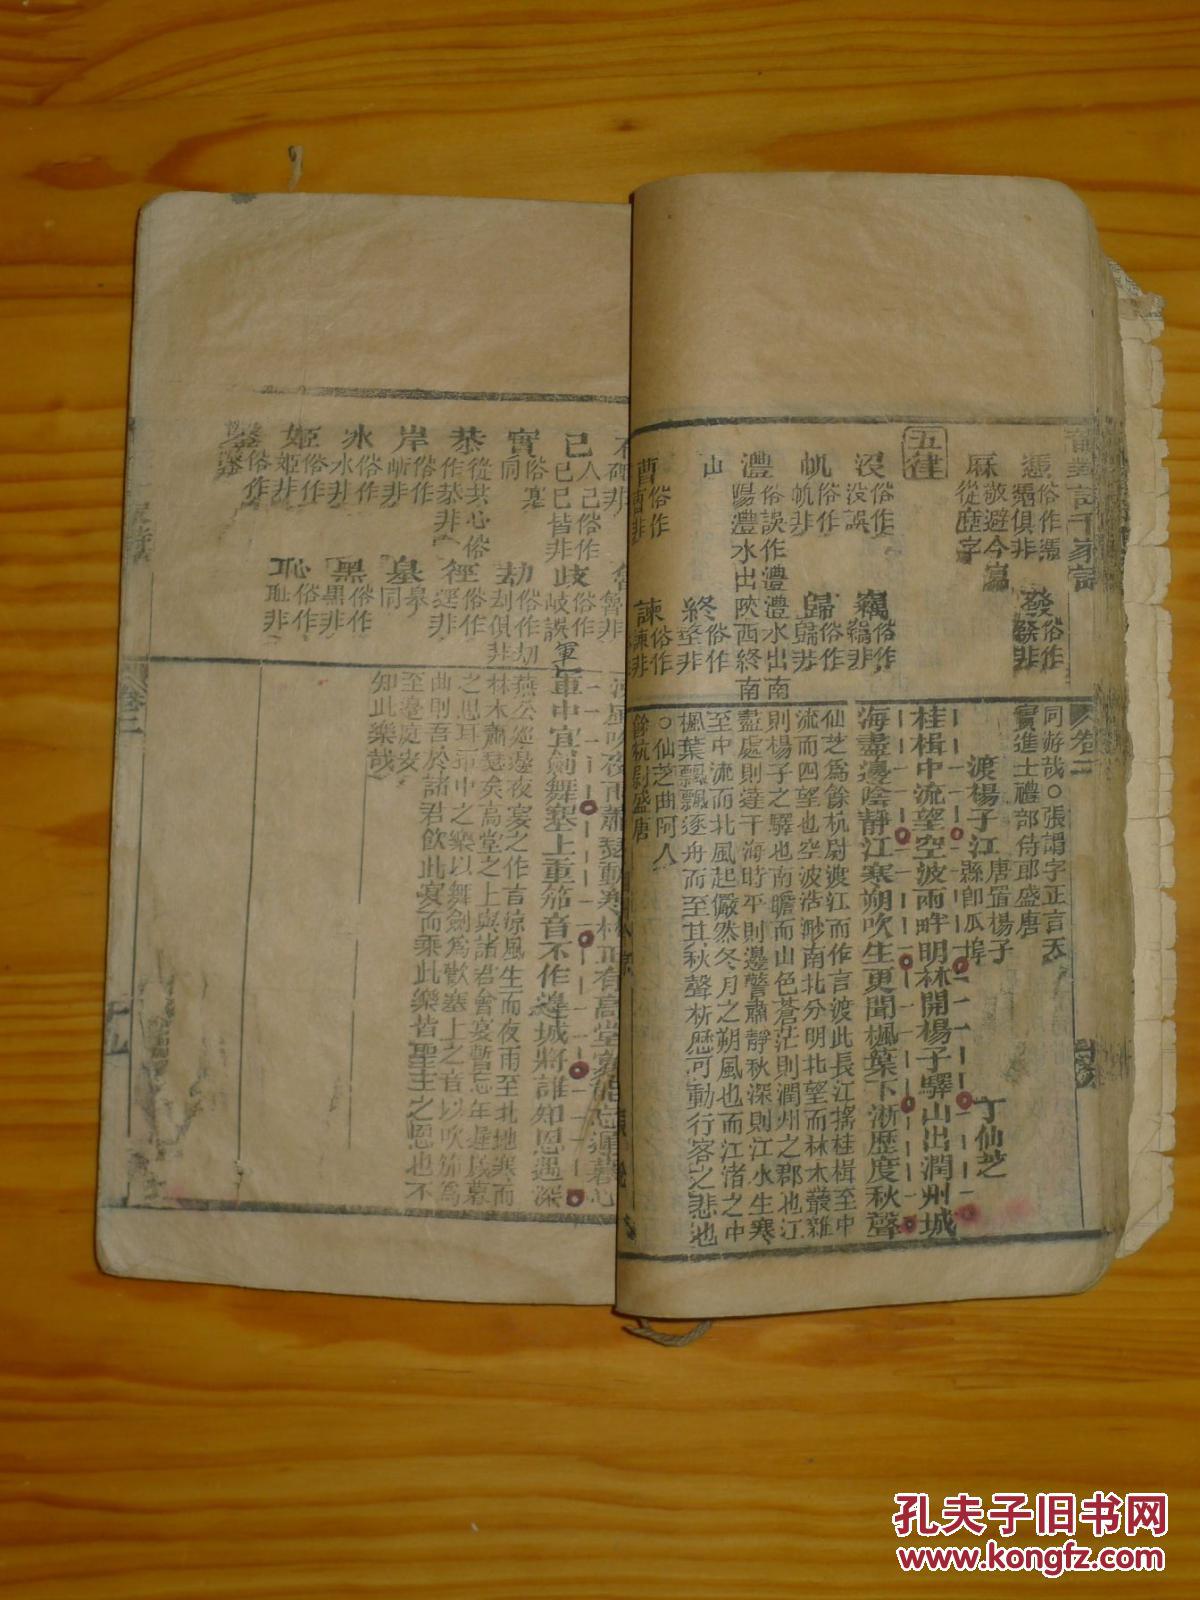 千家詩
卷二
憑俗作凴
俱非
發俗作
非
麻
敬避今
從座字
五律
没俗作
没誤
竊俗作
竊非
帆俗作
帆非
歸俗作
非
灃俗誤作澧澧水出南
陽灃水出陝西終南
山
終俗作
非
曹俗作
非
諫俗作
諫非
同遊哉○張謂字正言天
寶進士禮部侍郎盛唐
渡楊子江
唐置楊子
縣卽瓜埠
丁仙芝
桂楫中流望空波兩畔明林開楊子驛山出潤州城
海盡邊陰靜江寒朔吹生更聞楓葉下淅歷度秋聲
仙芝爲餘杭尉渡江而作言渡此長江搖桂楫至中
流而四望也空波浩渺南北分明北望而林木叢雜
則楊子之驛也南瞻而山色蒼茫則潤州之郡也江
盡處則達于海時平則邊警肅靜秋深則江水生寒
至中流而北風起儼然冬月之朔風也而江渚之中
楓葉飄飄逐舟而至其秋聲析歷可動行客之悲也
○仙芝曲阿人
餘杭尉盛唐
非
非
已
人己俗作
已巳皆非
歧俗作
岐誤
實俗寔
同
劫俗作刧
刦俱非
恭
從共心俗
作㳟非
徑俗作
非
岸俗作
非
墓
同
冰俗作
氷非
黑俗作
非
姬俗作
姫非
恥俗作
耻非
俗作
軍中宜劍舞塞上重笳音不作邊城將誰知恩遇深
燕公巡邊夜宴之作言凉風生而夜雨至北地寒而
林木蕭瑟矣高堂之上與諸君會宴暫忘年遲暮
之思耳軍中之樂以舞劍爲歡塞上之音以吹笳爲
曲則吾於諸君飲此宴而乘此樂皆聖主之恩也不
至邊庭安
知此樂哉
卷二
十五
孔夫子旧书网
www.kongfz.com